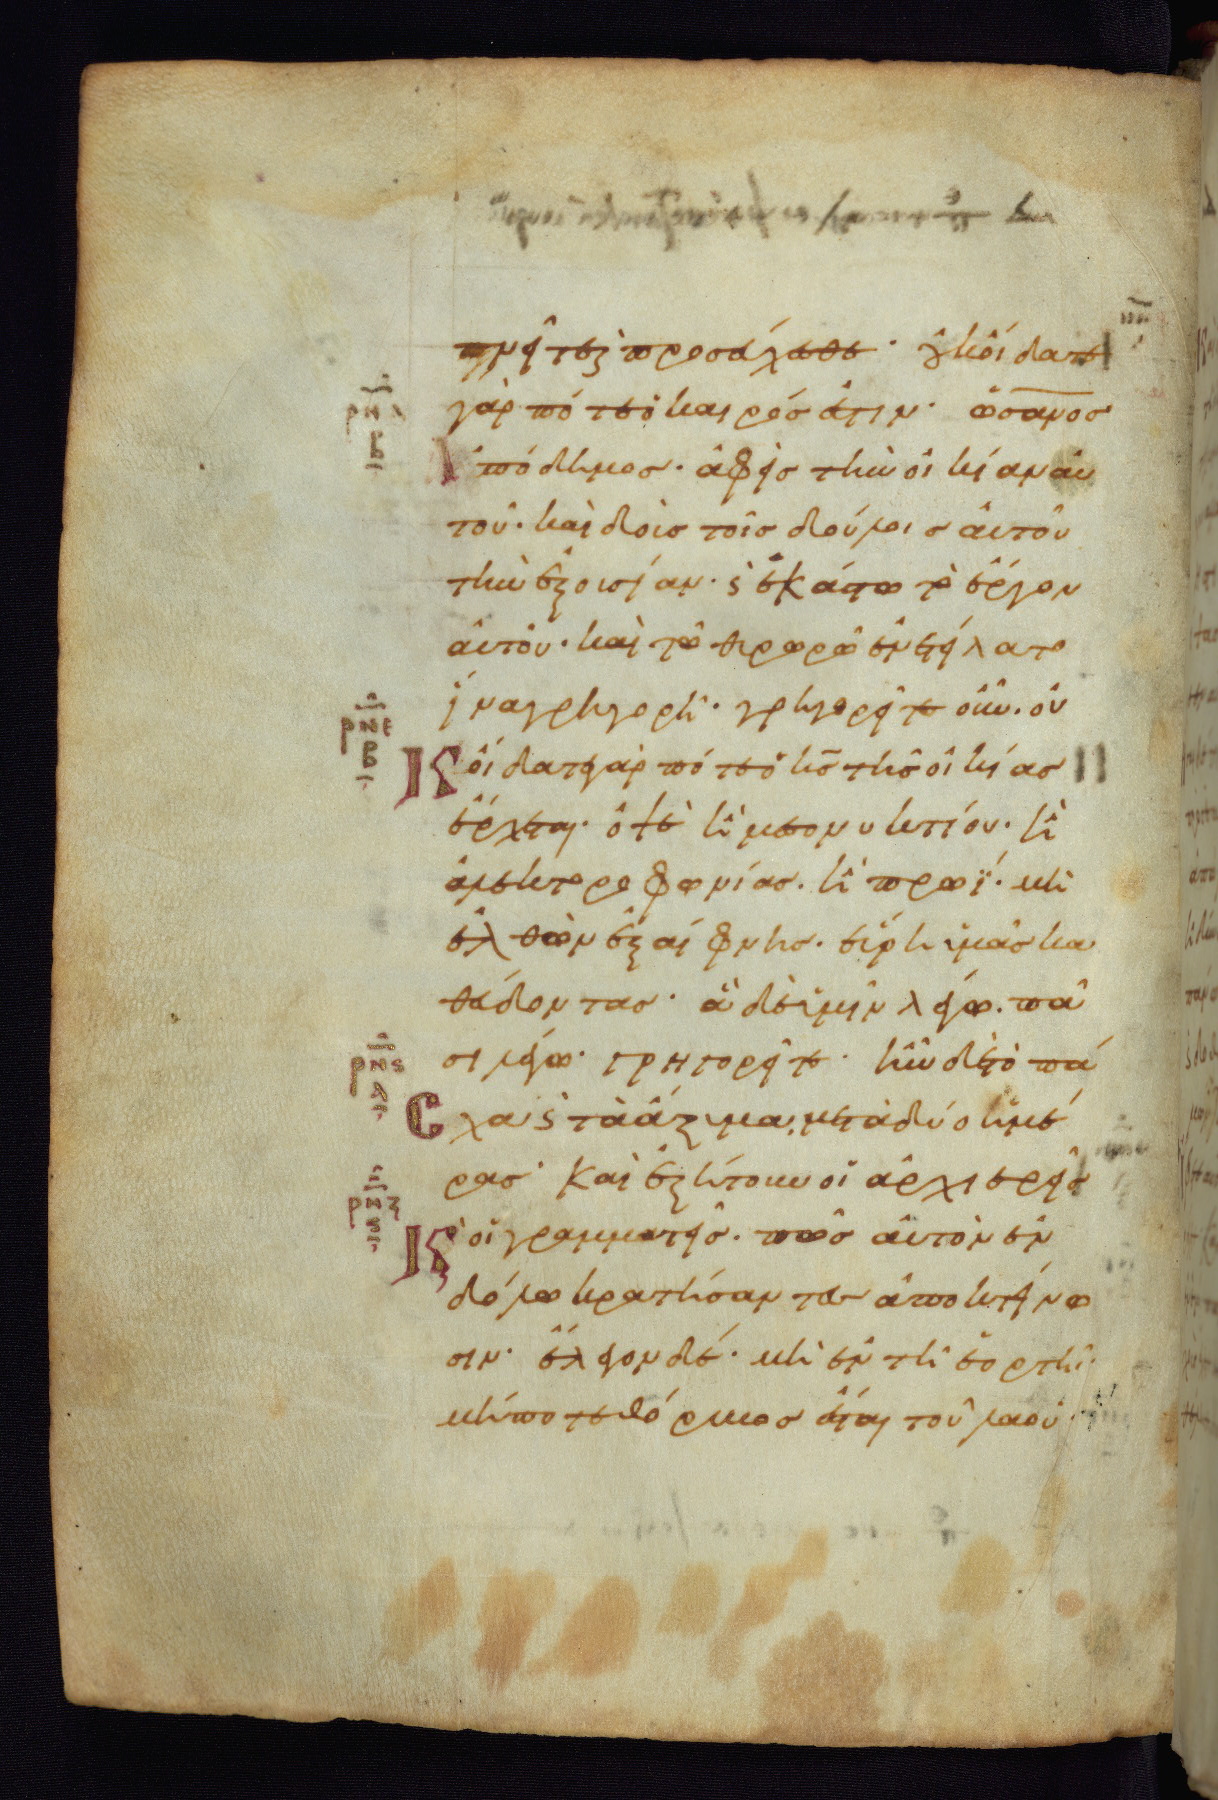 πνεῖτε ϛ προσεύχεσθε· οὐκ οἴδατε
ρνδ
β
γὰρ πότε ὁ καιρός ἐστιν· ὡς ἄνος
ἀπόδημος· ἀφεὶς τὴν οἰκίαν αὐ
τοῦ· καὶ δοὺς τοῖς δούλοις αὐτοῦ
τὴν ἐξουσίαν· ϛ ἑκάστω τὸ ἔργον
αὐτοῦ· καὶ τῶ θυρωρῶ ἐνετείλατο
ἵνα γρηγορῆ· γρηγορεῖτε οὖν· οὐ
ρνε
β
κ οἴδατε γὰρ πότε ὁ κς τῆς οἰκίας
ἔρχεται· ὀψὲ ἢ μεσονυκτίου· ἢ
ἀλεκτοροφωνίας· ἢ πρωΐ· μὴ
ἐλθὼν ἐξαίφνης· εὕρη ὑμᾶς κα
θεύδοντας· ἃ δὲ ὑμῖν λέγω· πᾶ
σι λέγω· γρηγορεῖτε· ἦν δὲ τὸ πά
ρνϛ
α
σχα ϛ τὰ ἄζυμα μετὰ δύο ἡμέ
ρας· Καὶ ἐζήτουν οἱ ἀρχιερεῖς
ρνζ
ϛ
Κ οἱ γραμματεῖς· πῶς αὐτὸν ἐν
δόλω κρατήσαντες ἀποκτείνω
σιν· ἔλεγον δέ· μὴ ἐν τῆ ἑορτῆ·
μήποτε θόρυβος ἔσται τοῦ λαοῦ·